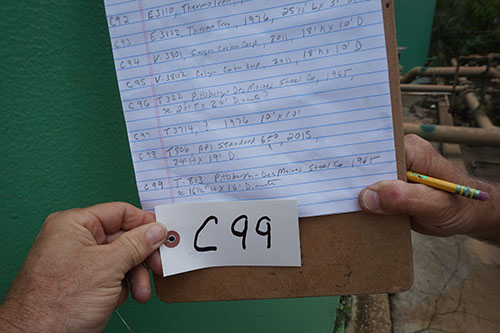 C92 E3110, Thermo Trex,
C93 E3112, Thermo Trex, 1976,
C94 V-3801, Calgon Carbon Corp, 2011, 18'h x 10' D
C95 V-3802 Calgon Carbon Corp, 2011, 18'h x 10' D
C96 T322, Pittsburgh-Des Moines Steel Co, 1965,
≈ 20'T x 20' D
C97 T3714, ? 1976 10' x 10'
C98 T806 API Standard 650, 2015,
24'H x 19' D
C99 T-813, Pittsburgh-Des Moines Steel Co 1965
≈ 16 1/2' H x 16' D
C99